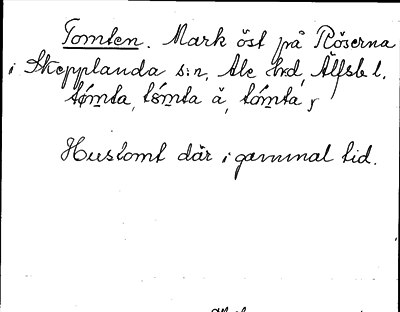 Tomten. Mark öst på Röserna
i Skepplanda s:n, Ale hrd, Älfsb l.
tómta, tómta å, tómta,
Hustomt där i gammal tid.